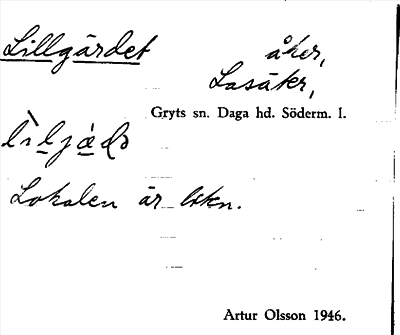 Lillgärdet åker,
Lasåker,
Gryts sn. Daga hd. Söderm. l.
Lokalen är bkn.
Artur Olsson 1946.